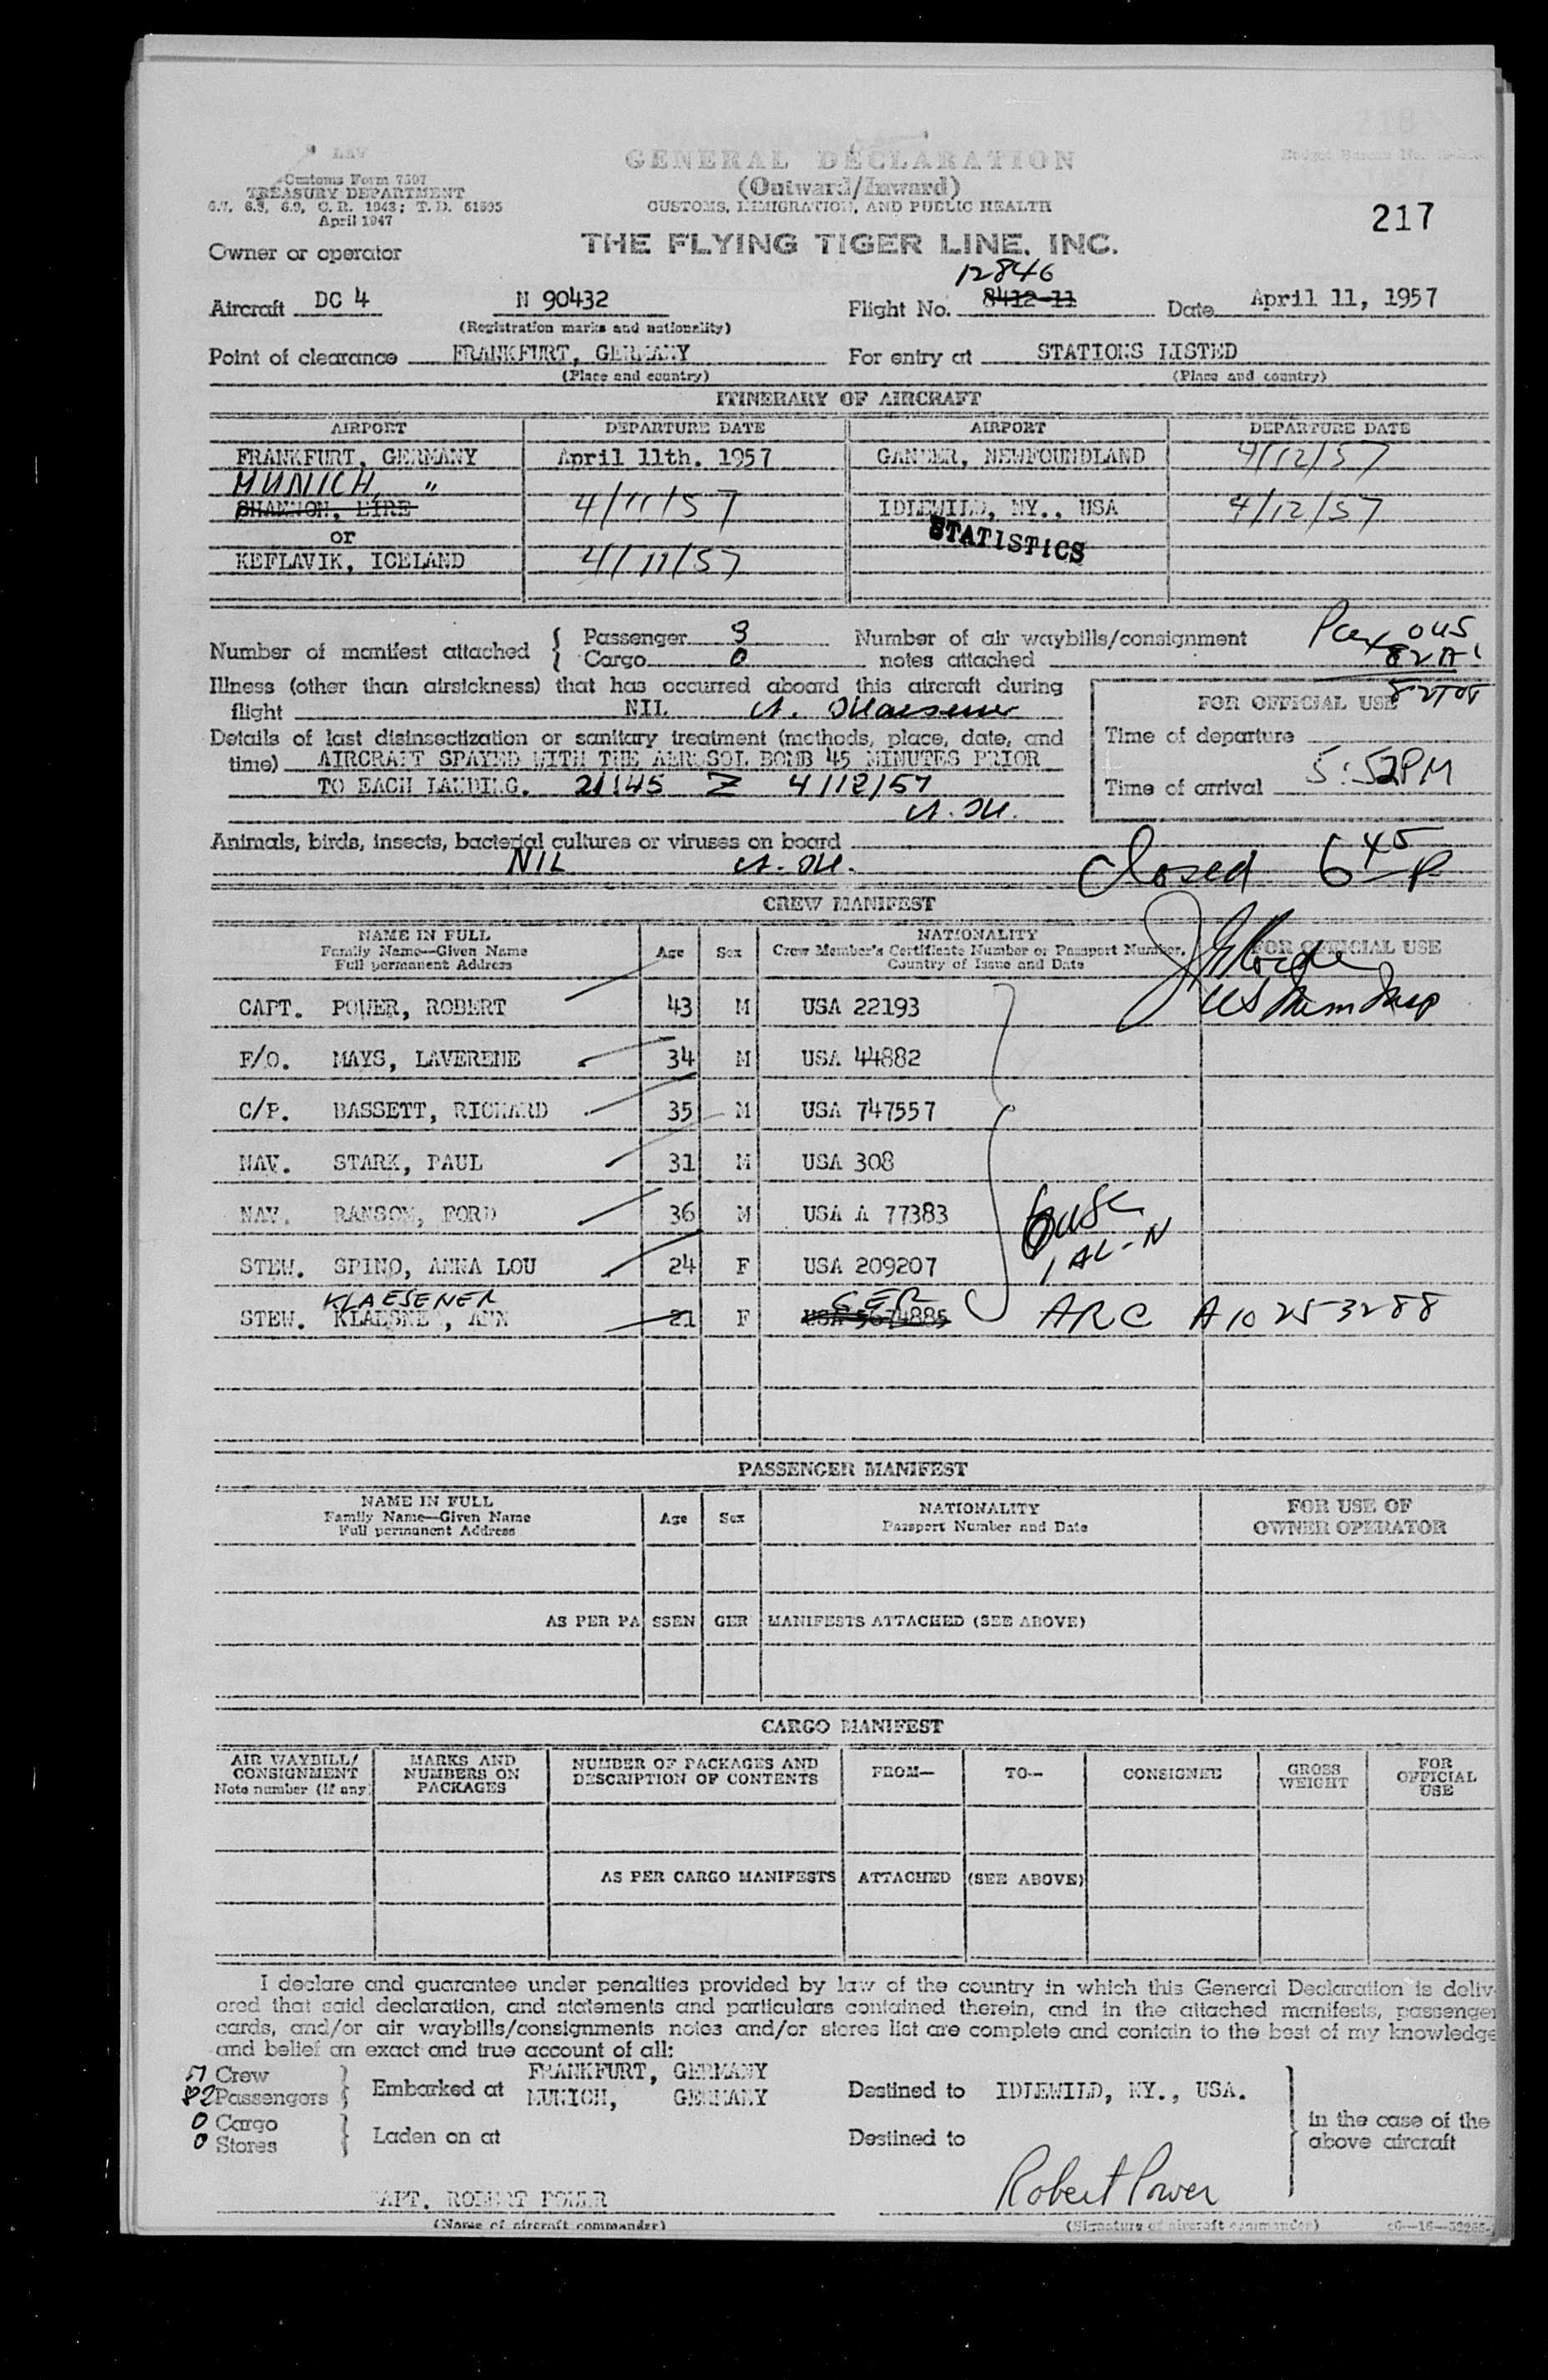 LAV
Customs Form 7507
TREASURY DEPARTMENT
6.7, 6.8, 6.9, C.R. 1943; T.D. 51595
April 1947
GENERAL DECLARATION
(Outward/Inward)
CUSTOMS, IMMIGRATION, AND PUBLIC HEALTH
217
Owner or operator THE FLYING TIGER LINE, INC.
12846
Aircraft DC 4 N 90432 Flight No. 8412-11 Date April 11, 1957
(Registration marks and nationality)
Point of clearance FRANKFURT, GERMANY For entry at STATIONS LISTED
(Place and country) (Place and country)
ITINERARY OF AIRCRAFT
AIRPORT DEPARTURE DATE AIRPORT DEPARTURE DATE
FRANKFURT, GERMANY April 11th. 1957 GANDER, NEWFOUNDLAND 4/12/57
MUNICH, "
SHANNON, EIRE 4/11/57 IDLEWILD, NY., USA 4/12/57
or STATISTICS
KEFLAVIK, ICELAND 4/11/57
Number of manifest attached { Passenger 3 Number of air waybills/consignment
Cargo 0 notes attached
Pax 0US
82 A
Illness (other than airsickness) that has occurred aboard this aircraft during
flight NIL
FOR OFFICIAL USE
Details of last disinsectization or sanitary treatment (methods, place, date, and
time) AIRCRAFT SPAYED WITH THE AEROSOL BOMB 45 MINUTES PRIOR
TO EACH LANDING. 2145 Z 4/12/57
Time of departure
Time of arrival 5:52PM
Animals, birds, insects, bacterial cultures or viruses on board
NIL
Closed 6 45 P
CREW MANIFEST
NAME IN FULL
Family Name—Given Name
Full permanent Address
Age Sex
NATIONALITY
Crew Member's Certificate Number or Passport Number,
Country of Issue and Date
FOR OFFICIAL USE
US Imm Insp
CAPT. POWER, ROBERT 43 M USA 22193
F/O. MAYS, LAVERENE 34 M USA 44882
C/P. BASSETT, RICHARD 35 M USA 747557
NAV. STARK, PAUL 31 M USA 308
NAV. RANSOM, FORD 36 M USA A 77383
6 USC
1 AL-N
STEW. SPINO, ANNA LOU 24 F USA 209207
KLAESENER GER
STEW. KLAESNE , ANN 21 F USA 5674885 ARC A10 253288
PASSENGER MANIFEST
NAME IN FULL
Family Name—Given Name
Full permanent Address
Age Sex
NATIONALITY
Passport Number and Date
FOR USE OF
OWNER OPERATOR
AS PER PASSENGER MANIFESTS ATTACHED (SEE ABOVE)
CARGO MANIFEST
AIR WAYBILL/
CONSIGNMENT
Note number (if any)
MARKS AND
NUMBERS ON
PACKAGES
NUMBER OF PACKAGES AND
DESCRIPTION OF CONTENTS
FROM— TO— CONSIGNEE
GROSS
WEIGHT
FOR
OFFICIAL
USE
AS PER CARGO MANIFESTS ATTACHED (SEE ABOVE)
I declare and guarantee under penalties provided by law of the country in which this General Declaration is deliv-
ered that said declaration, and statements and particulars contained therein, and in the attached manifests, passenger
cards, and/or air waybills/consignments notes and/or stores list are complete and contain to the best of my knowledge
and belief an exact and true account of all:
7 Crew
82 Passengers } Embarked at FRANKFURT, GERMANY
MUNICH, GERMANY Destined to IDLEWILD, NY., USA.
0 Cargo
0 Stores } Laden on at Destined to
in the case of the
above aircraft
CAPT. ROBERT POWER Robert Power
(Name of aircraft commander) (Signature of aircraft commander)